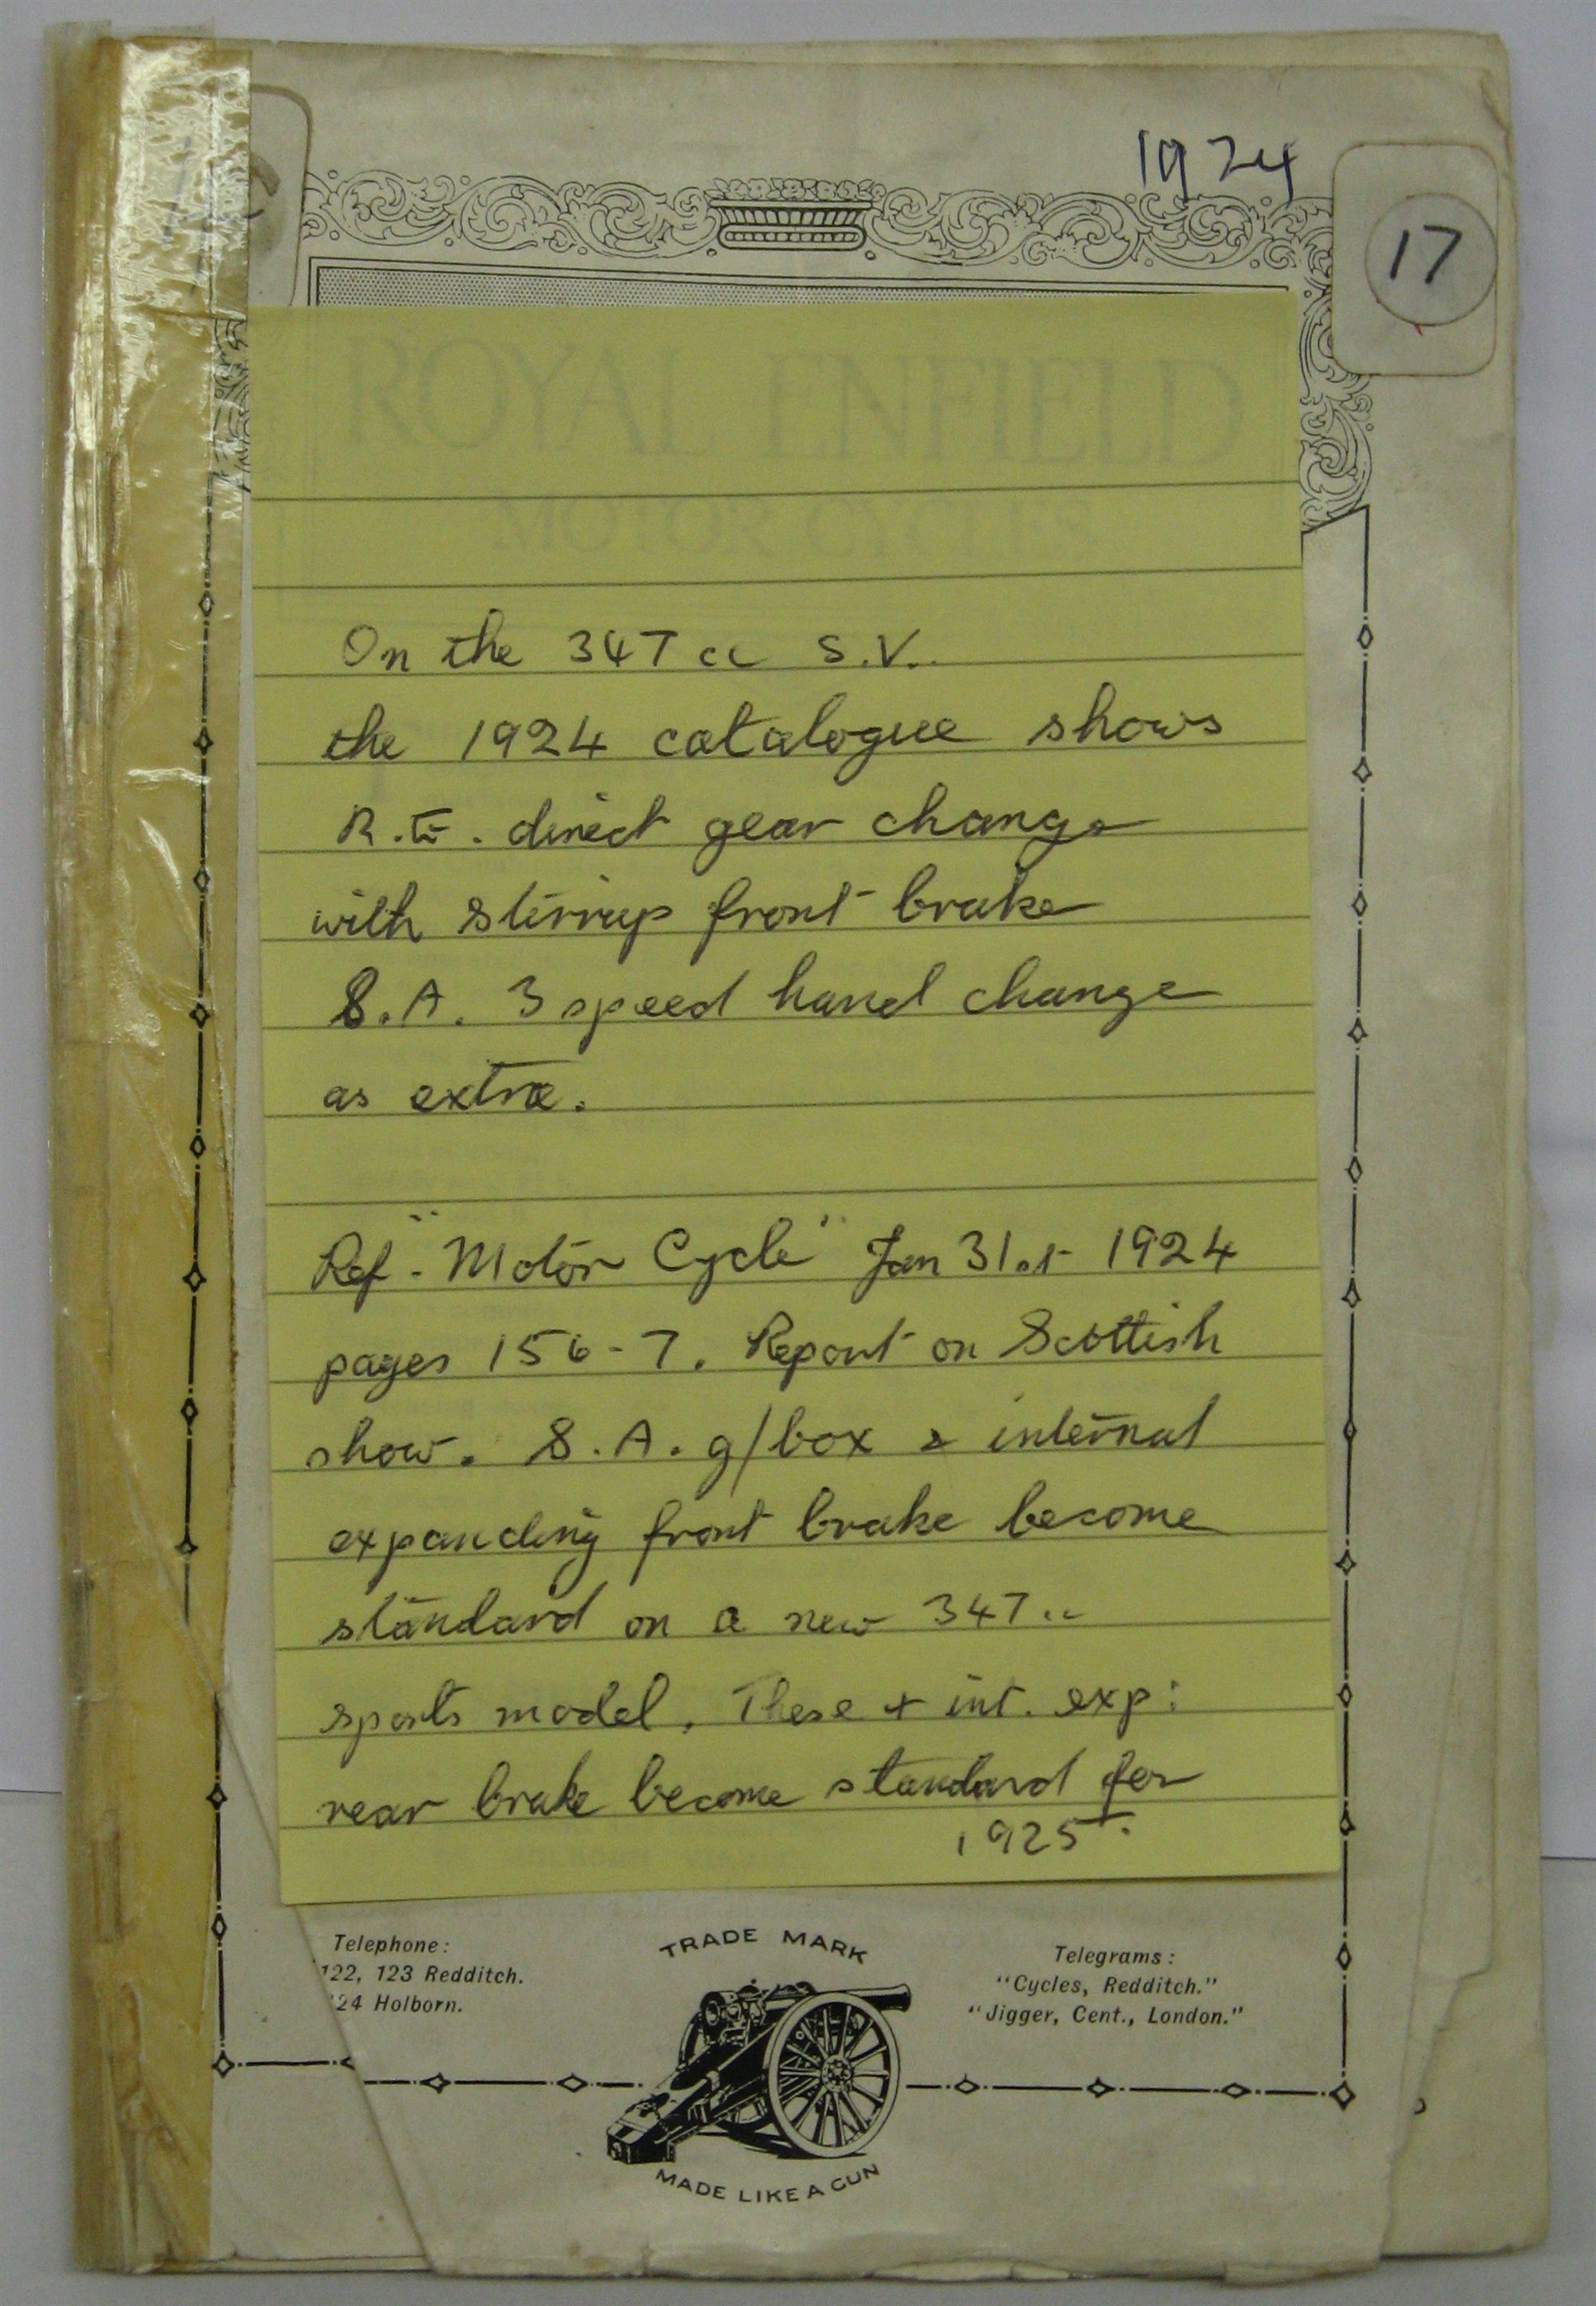 1924
17
ROYAL ENFIELD
MOTOR CYCLES
On the 347 cc S.V.
the 1924 catalogue shows
R.E. direct gear change
with stirrup front brake
S.A. 3 speed hand change
as extra.
Ref. "Motor Cycle" Jan 31st 1924
pages 156-7. Report on Scottish
show. S.A. g/box & internal
expanding front brake become
standard on a new 347 cc
sports model. These + int. exp:
rear brake become standard for
1925.
Telephone:
122, 123 Redditch.
24 Holborn.
TRADE MARK
Telegrams:
"Cycles, Redditch."
"Jigger, Cent., London."
MADE LIKE A GUN